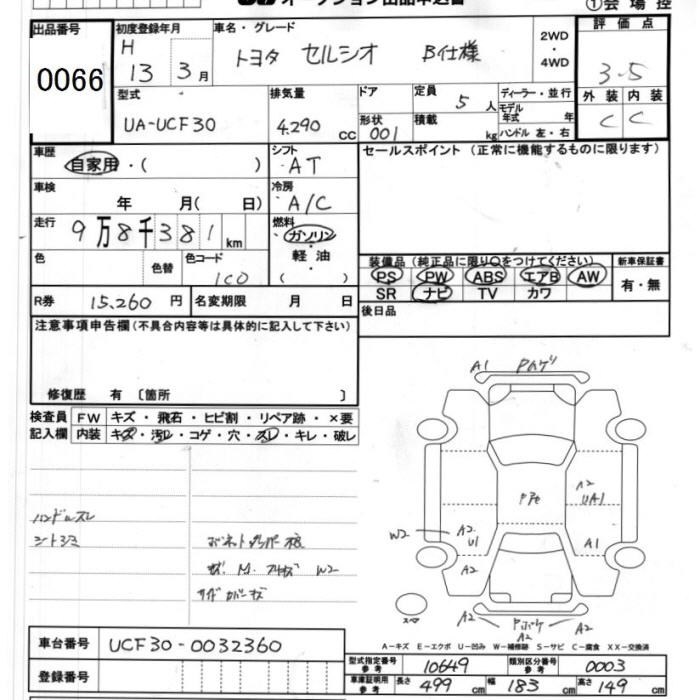 ①会場控
出品番号 0066
初度登録年月 H 13 3月
車名・グレード トヨタ セルシオ B仕様
2WD・4WD
評価点 3.5
外装 内装
C C
型式 UA-UCF30
排気量 4.290 cc
ドア
形状 001
定員 5人
積載 kg
ディーラー・並行
モデル年式 年
ハンドル 左・右
車歴 自家用・( )
シフト AT
セールスポイント (正常に機能するものに限ります)
車検 年 月( 日)
冷房 A/C
走行 9万8千381 km
燃料 ガソリン・軽油・( )
色 色替 色コード 1C0
装備品(純正品に限り○をつけてください) 新車保証書
PS PW ABS エアB AW 有・無
SR ナビ TV カワ
R券 15,260円 名変期限 月 日
後日品
注意事項申告欄(不具合内容等は具体的に記入して下さい)
修復歴 有〔箇所 〕
検査員 FW キズ・飛石・ヒビ割・リペア跡・×要
記入欄 内装 キズ・汚レ・コゲ・穴・スレ・キレ・破レ
A1
A2
UA1
W2
A2
U1
A1
A2
ハンドルスレ
シートシミ
W2
スペア
A2 A2 A2
A-キズ E-エクボ U-凹み W-補修跡 S-サビ C-腐食 XX-交換済
車台番号 UCF30-0032360
型式指定番号 参考 10649 類別区分番号 参考 0003
登録番号
車庫証明用 参考 長さ 499 cm 幅 183 cm 高さ 149 cm